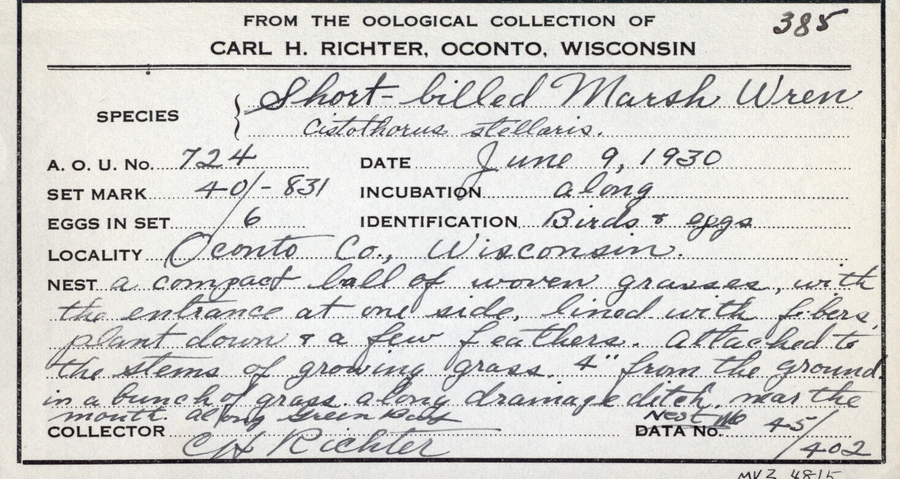 385
FROM THE OOLOGICAL COLLECTION OF
CARL H. RICHTER, OCONTO, WISCONSIN
SPECIES Short-billed Marsh Wren
Cistothorus stellaris.
A. O. U. No. 724 DATE June 9, 1930
SET MARK 40/-831 INCUBATION along
EGGS IN SET 6 IDENTIFICATION Birds & eggs
LOCALITY Oconto Co., Wisconsin.
NEST a compact ball of woven grasses, with
the entrance at one side, lined with fibers,
plant down & a few feathers. Attached to
the stems of growing grass. 4" from the ground.
in a bunch of grass along drainage ditch, near the
mouth along Green Bay
COLLECTOR CH Richter Nest No DATA No. 45/402
MVZ 4815